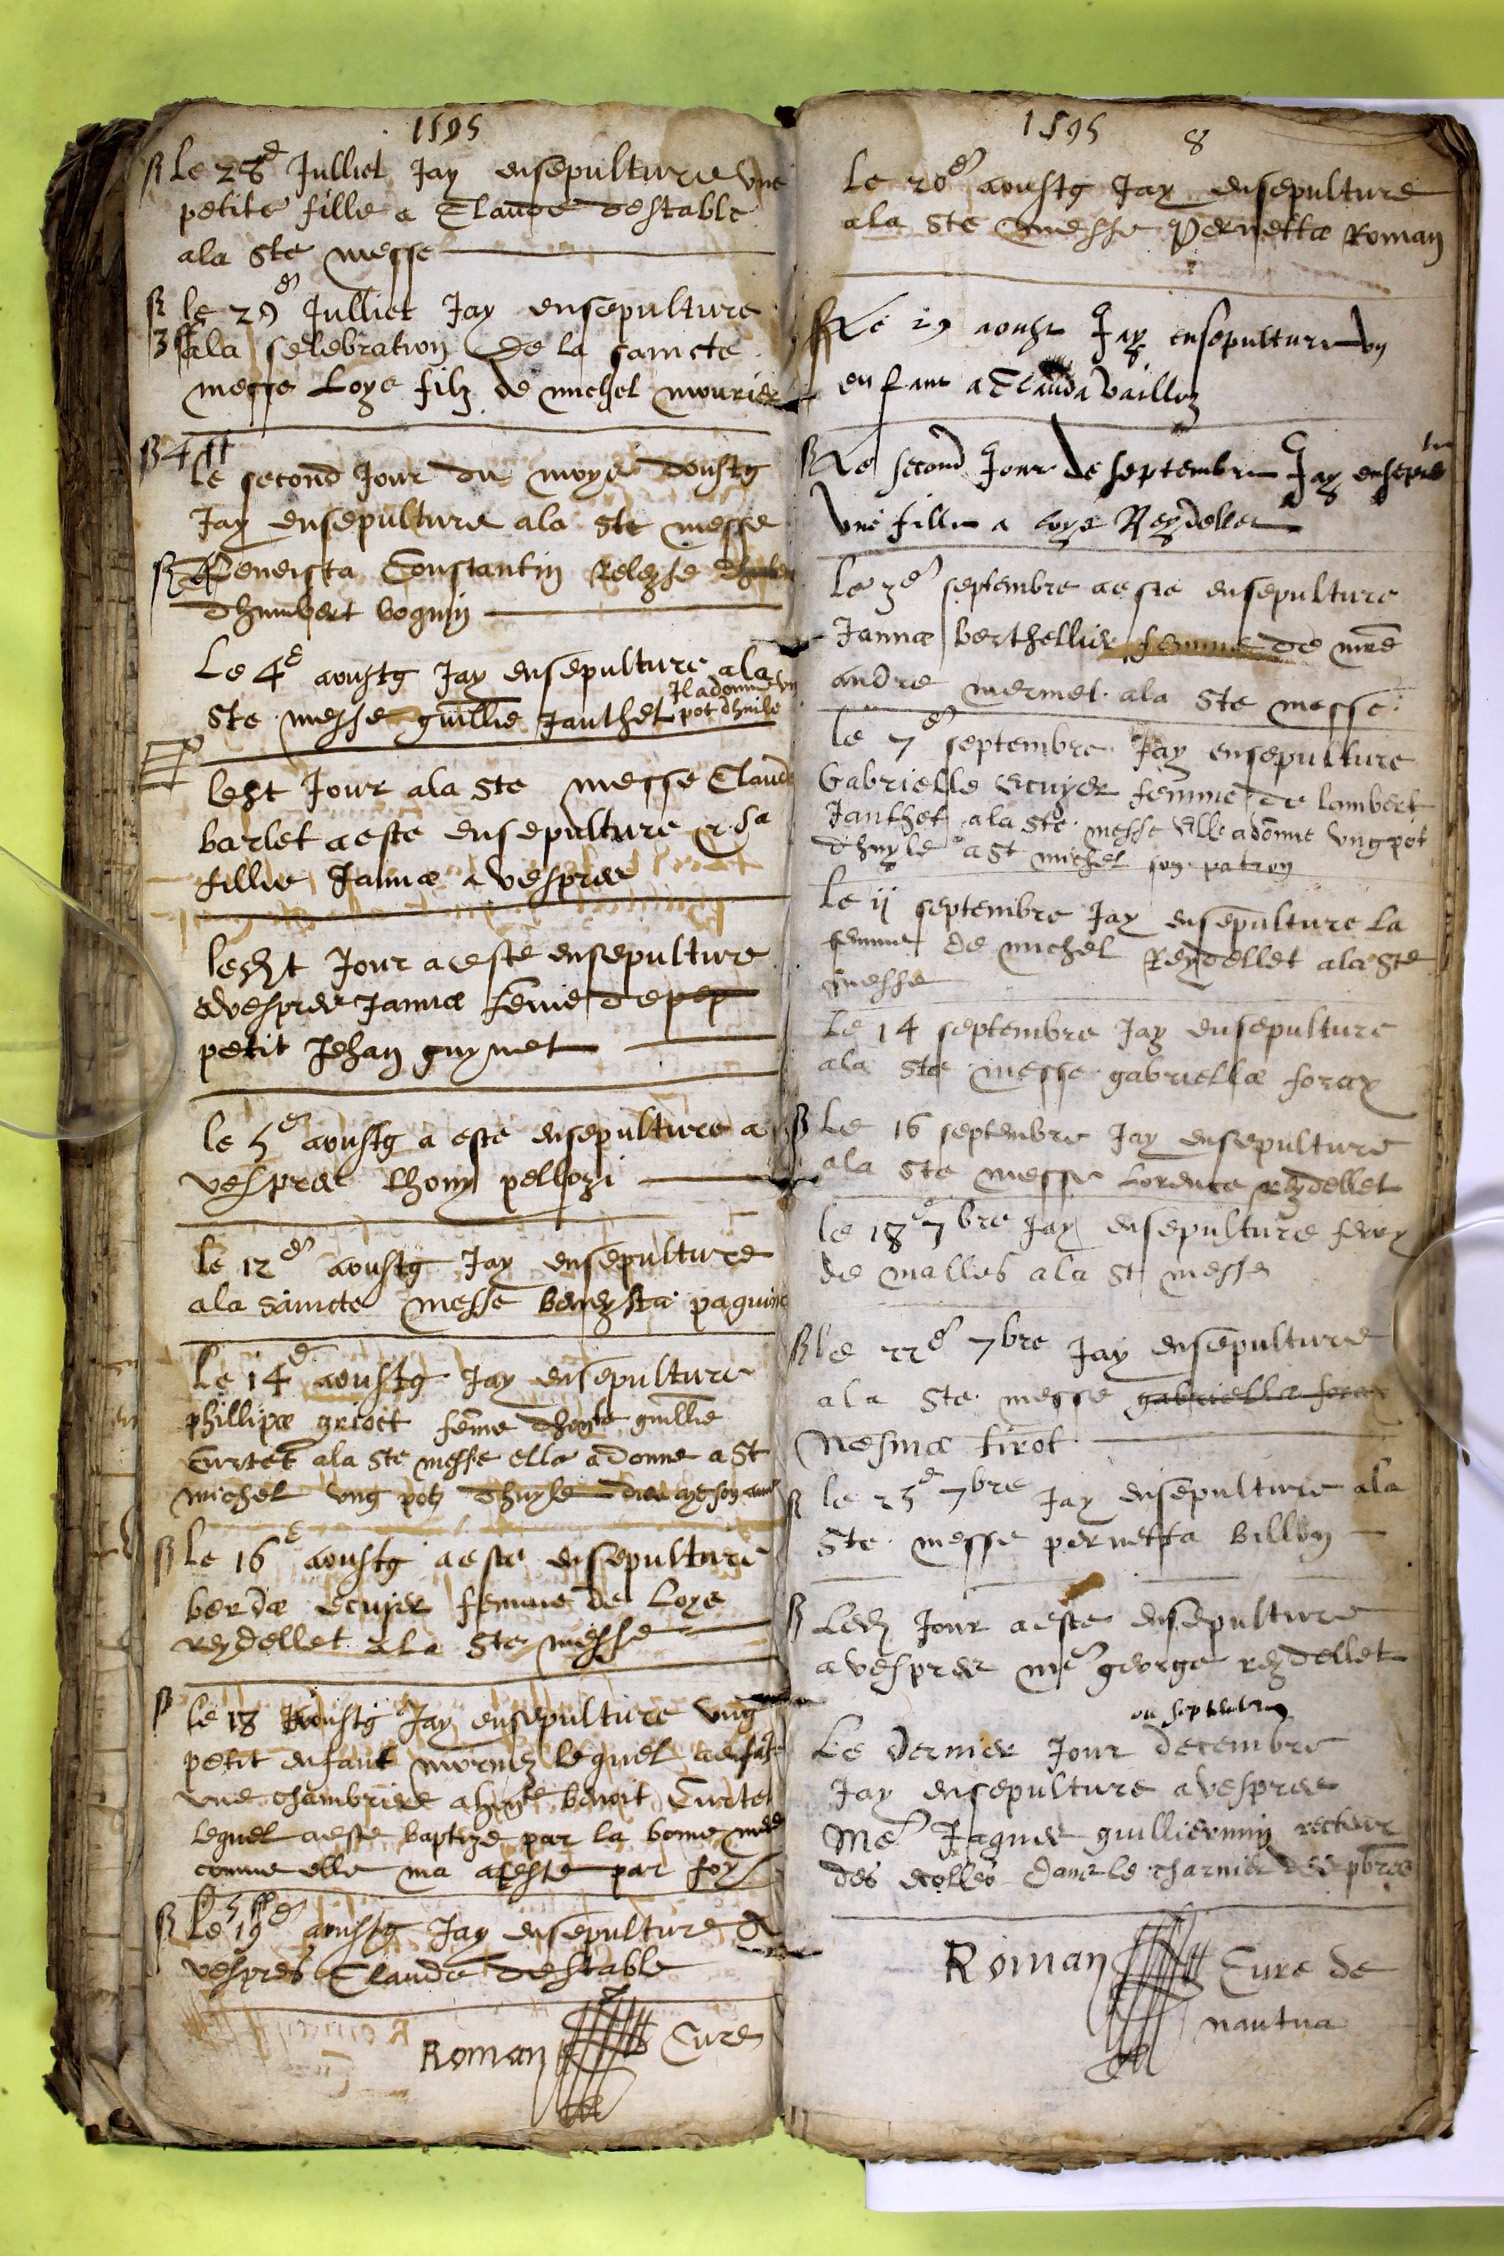 1595
Le 28e Julliet Jay ensepulture une
petite fille a Claude destable
a la Ste messe
le 29e Julliet Jay ensepulture
ala selebration de la saincte
messe Loye filz de michel mourier
le second Jour du moys doustg
Jay ensepulture ala Ste messe
Beneista Constantin Releyse
dhumbert voguin
Le 4e aoustg Jay ensepulture ala
Ste messe guillie Janthet Il a donne un
pot dhuile
ledt Jour ala Ste messe Claude
barlet a este ensepulture & sa
fillie Janna a vespree
ledt Jour a este ensepulture
a vespree Janna feme de pep
petit Jehan guynet
le 5e aoustg a este ensepulture a
vespree thony pellozi
le 12e aoustg Jay ensepulture
ala saincte messe beneysta paguina
Le 14e aoustg Jay ensepulture
phillipa grioct feme dhoble guillie
Curtet ala Ste messe ella a donne a St
michel ung pot dhuyle dieu aye son ame
le 16e aoustg a este ensepulture
berda ecuyer femme de Loye
reydellet a la Ste messe
le 18 aoustg Jay ensepulture ung
petit enfant lequel
une chambriere a benoit Curtet
lequel a este baptize par la bonne mere
comme elle ma ateste par foy
Le 19e aoustg Jay ensepulture a
vespres Claude destable
Roman Cure
1595
8
Le 20e aoustg Jay ensepulture
ala Ste messe Pernetta Roman
Le 29 aoust Jay ensepulture un
enfant a Clauda Vailloz
Le second Jour de septembre Jay ensepultu
une fille a Loye Reydellet
Le 3e septembre a este ensepulture
Janna berthellier femme de mre
andre mermet ala Ste messe
le 7e septembre Jay ensepulture
Gabrielle Ecuyer femme de lombert
Janthet ala Ste messe Elle a donne ung pot
dhuyle a St michel son patron
Le ij septembre Jay ensepulture la
femme de michel Reydellet ala Ste
messe
Le 14 septembre Jay ensepulture
ala Ste messe gabriella foray
Le 16 septembre Jay ensepulture
ala Ste messe Lorence reydellet
le 18e 7bre Jay ensepulture
de malles a la St messe
le 22e 7bre Jay ensepulture
a la Ste messe gabriella foray
Nesma tirot
le 25e 7bre Jay ensepulture ala
Ste messe pernetta billon
Led Jour a este ensepulture
a vespree me george reydellet
ou septembre
Le dernier Jour decembre
Jay ensepulture a vespree
Me Jaques guilliermin recteur
des ecolles dans le charnier des pbres
Roman Cure de
nantua